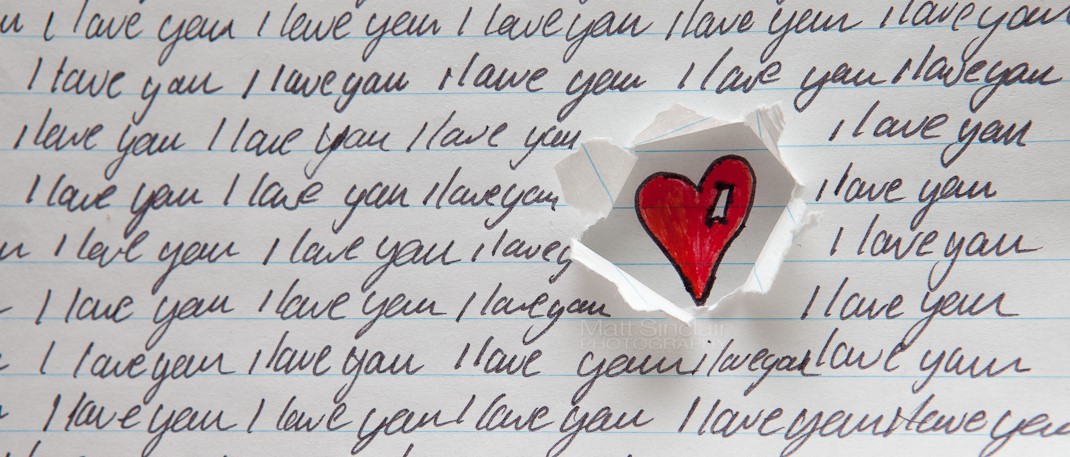 u I love you I love you I love you I love you I love you
I love you I love you I love you I love you I love you
I love you I love you I love you I love you
I love you I love you I love you I love you
u I love you I love you I love y I love you
I love you I love you I love you I love you
Matt Sinclair
PHOTOGRAPHY
I love you I love you I love you I love you I love you
I love you I love you I love you I love you I love you